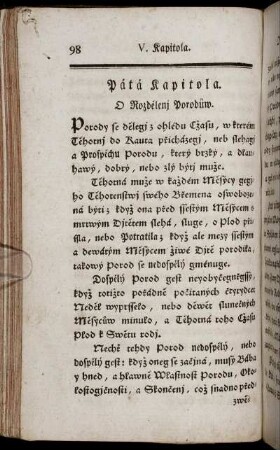 98
V. Kapitola.
Pátá Kapitola.
O Rozdělenj Porodůw.
Porody se dělegj z ohledu Cžasu, w kterém
Těhotnj do Kauta přicházegj, neb slehagj
a Prospěchu Porodu, který brzký, a dlau-
hawý, dobrý, nebo zlý býti muže.
Těhotná muže w každém Měsýcy gegj-
ho Těhotenstwj swého Břemena oswoboze-
ná býti; když ona před ssestým Měsýcem s
mrtwým Djtětem slehá, sluge, o Plod při-
ssla, nebo Potratila; když ale mezy ssestým
a dewátým Měsýcem žiwé Djtě porodila,
takowý Porod se nedospělý gmenuge.
Dospělý Porod gest neyobyčegněgssj,
když totižto pořádně počitaných čtyrydceti
Neděl wyprsselo, nebo dewět slunečných
Měsýcůw minulo, a Těhotná toho Cžasu
Plod k Swětu rodj.
Nechť tehdy Porod nedospělý, nebo
dospělý gest: když oneg se začjná, musý Bába
hned, a hlawně Wlastnosť Porodu, Oko-
ločtogičnosti, a Skončenj, což snadno před-
zwě-